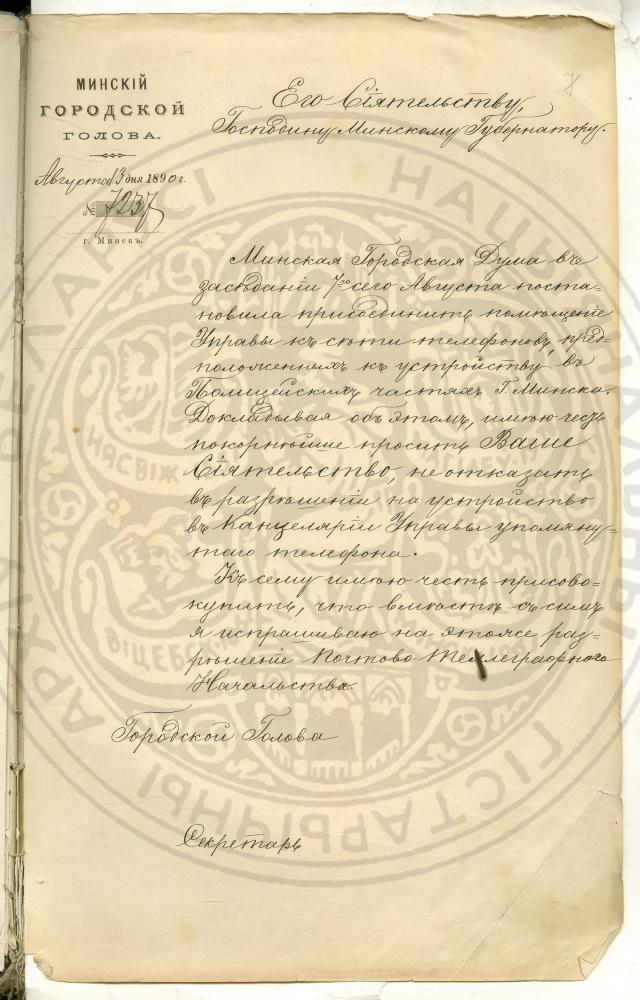 МИНСКІЙ
ГОРОДСКОЙ
ГОЛОВА.
Августа 13 дня 1890 г.
№ 7237
г. Минскъ.
Его Сіятельству,
Господину Минскому Губернатору.
Минская Городская Дума въ
засѣданіи 7го сего Августа поста-
новила присоединить помѣщеніе
Управы къ сѣти телефоновъ, пред-
положенныхъ къ устройству въ
Полицейскихъ частяхъ Г. Минска.
Докладывая объ этомъ, имѣю честь
покорнѣйше просить Ваше
Сіятельство, не отказать
въ разрѣшеніи на устройство
въ Канцеляріи Управы упомяну-
таго телефона.
Къ сему имѣю честь присово-
купить, что вмѣстѣ съ симъ
я испрашиваю на этоже раз-
рѣшеніе Почтово-Телеграфнаго
Начальства.
Городской Голова
Секретарь